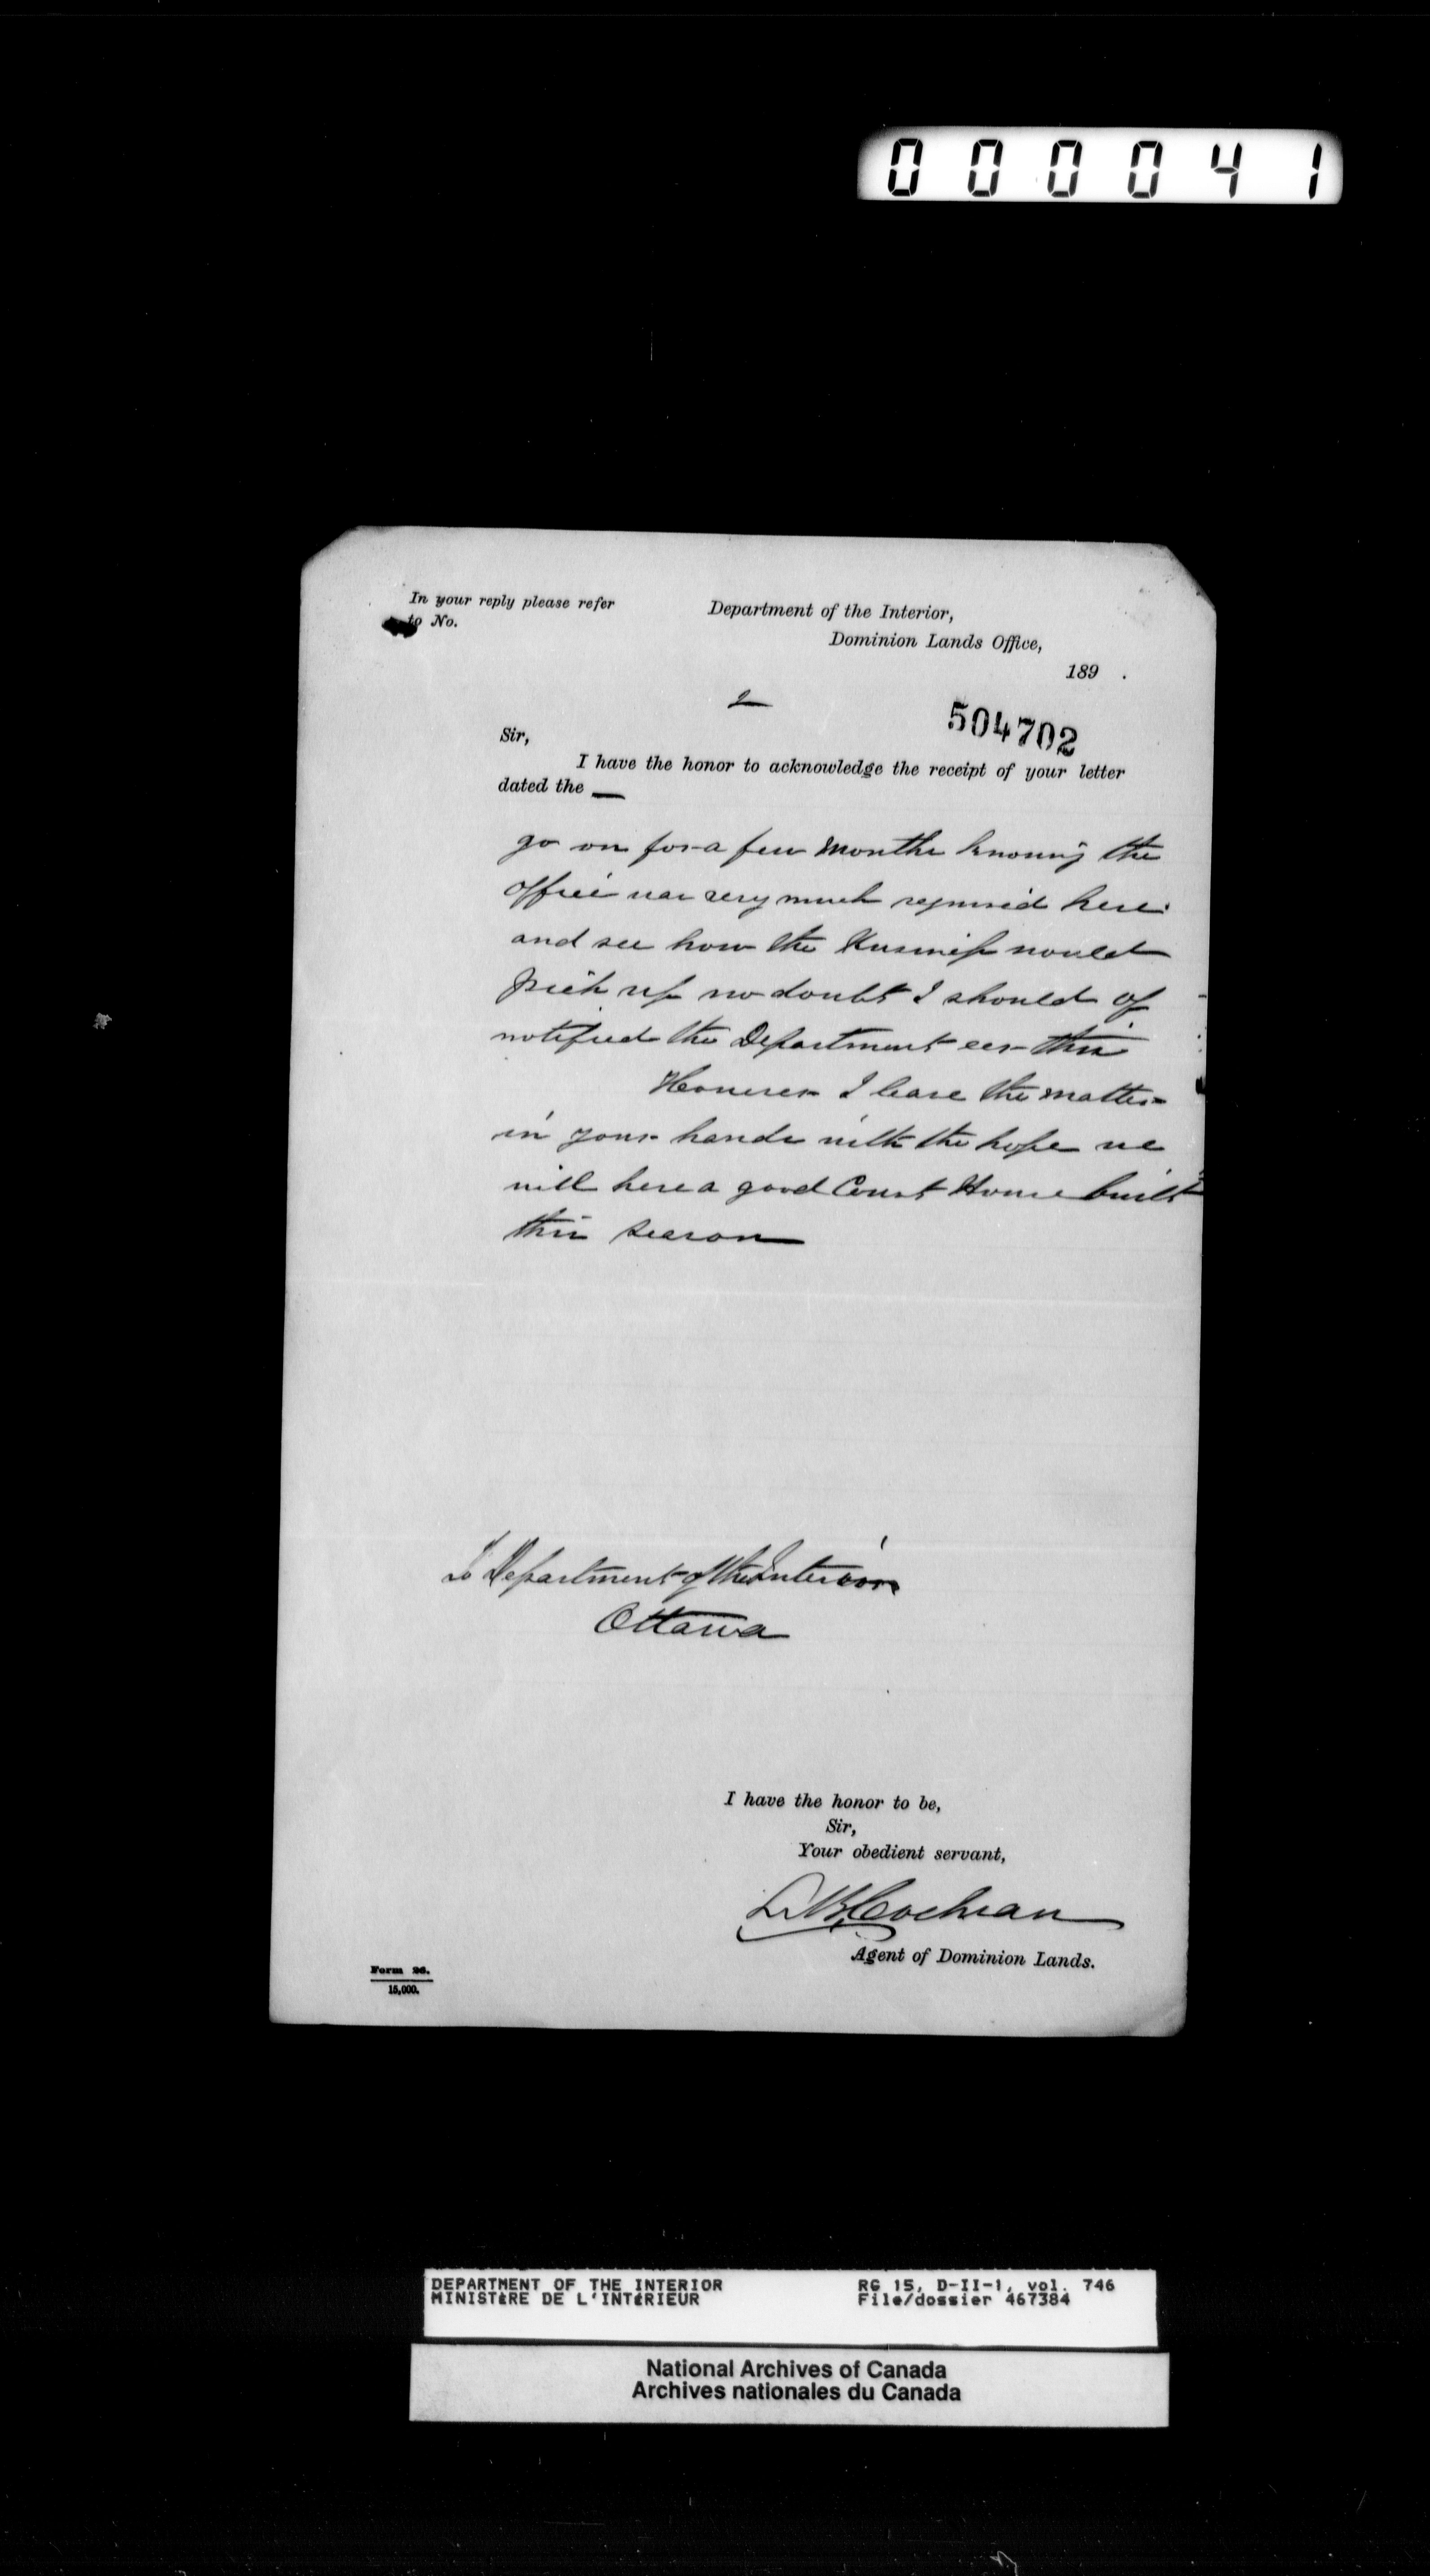 000041
In your reply please refer
to No.
Department of the Interior,
Dominion Lands Office,
189 .
2
504702
Sir,
I have the honor to acknowledge the receipt of your letter
dated the —
go on for a few months knowing the
office was very much required here
and see how the business would
pick up no doubt I should of
notified the Department this
However I leave the matter
in your hands with the hope we
will have a good Court House built
this season
To Department of the Interior
Ottawa
I have the honor to be,
Sir,
Your obedient servant,
Cochran
Agent of Dominion Lands.
Form 26.
15,000.
DEPARTMENT OF THE INTERIOR
MINISTÈRE DE L'INTÉRIEUR
RG 15, D-II-1, vol. 746
File/dossier 467384
National Archives of Canada
Archives nationales du Canada